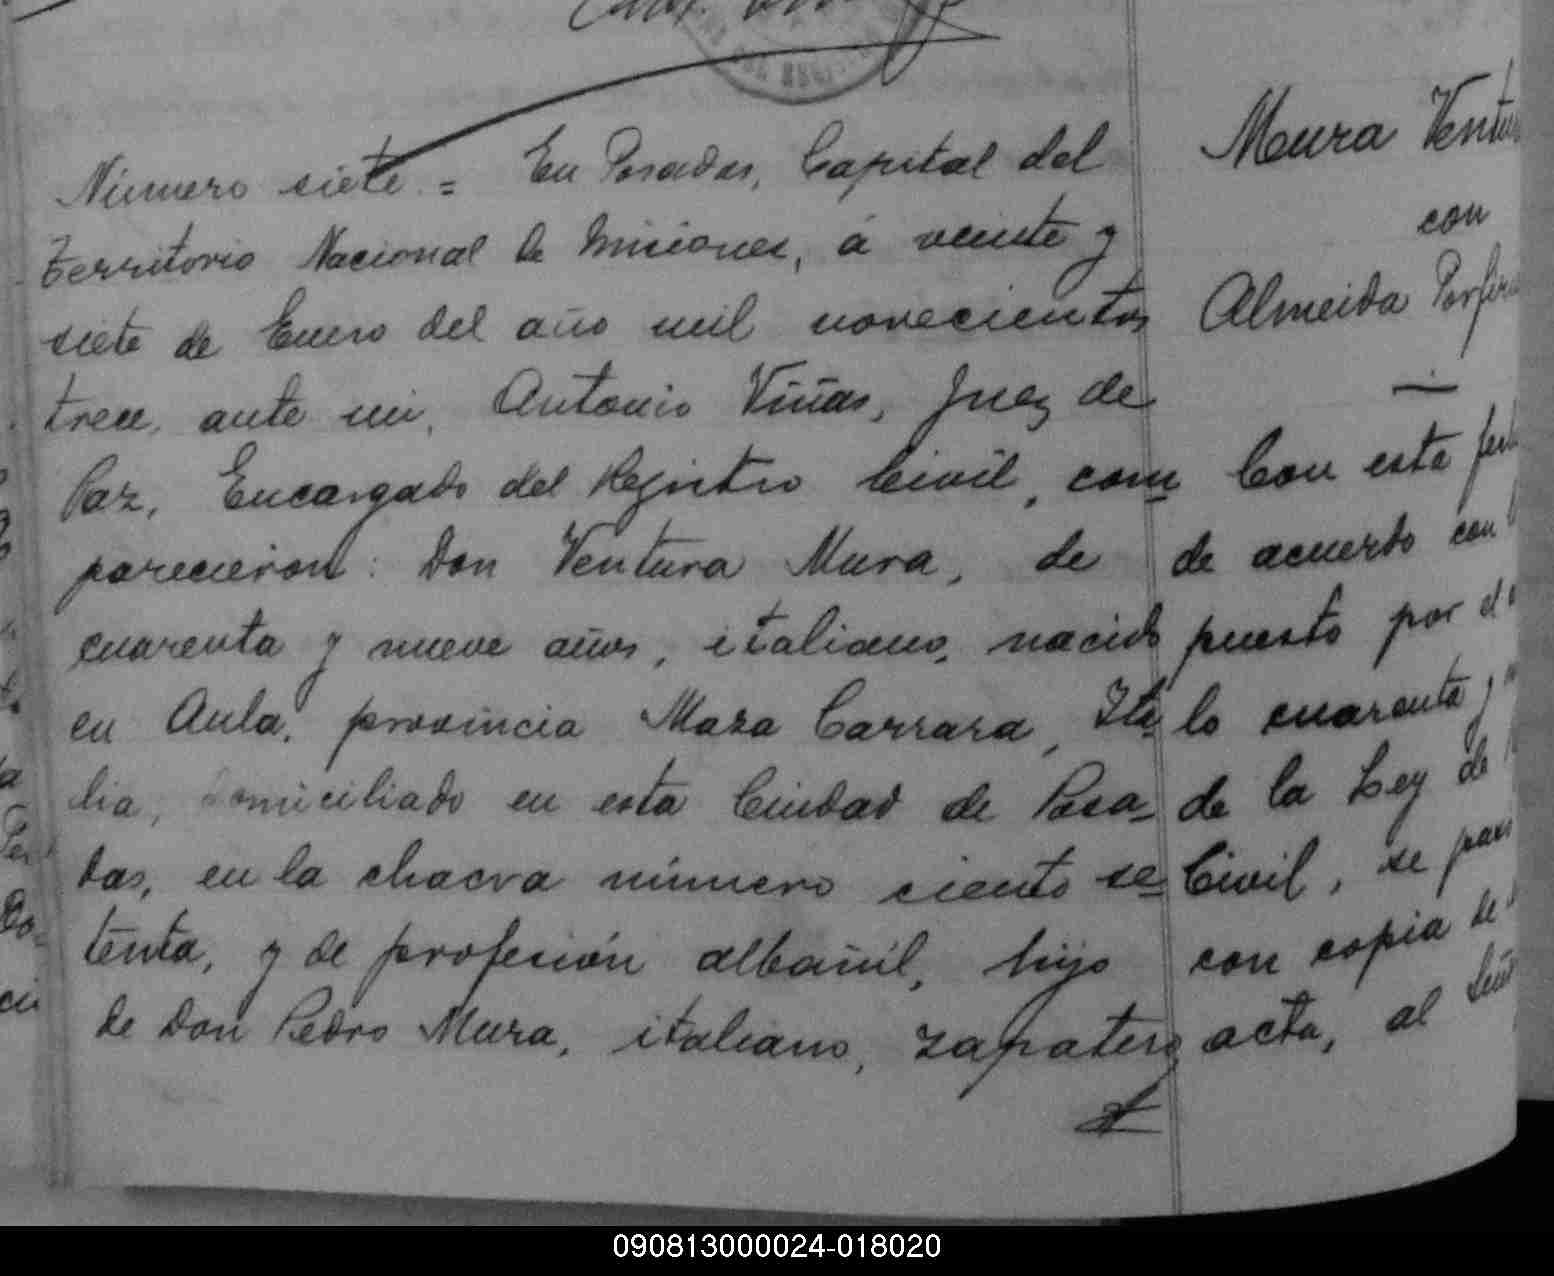 Número siete = En Posadas, Capital del
territorio Nacional de Misiones, á veinte y
siete de Enero del año mil novecientos
trece, ante mi, Antonio Viñas, Juez de
Paz, Encargado del Registro Civil, com
parecieron: Don Ventura Mura, de
cuarenta y nueve años, italiano, nacido
en Aula, provincia Masa Carrara, Ita-
lia, domiciliado en esta Ciudad de Posa-
das, en la chacra número ciento se-
tenta, y de profesión albañil, hijo
de Don Pedro Mura, italiano, zapatero
Mura Ventu
con
Almeida Porfir
Con esta fech
de acuerdo con
puesto por el
lo cuarenta y
de la Ley de
Civil, se pas
con copia de
acta, al Señ
090813000024-018020